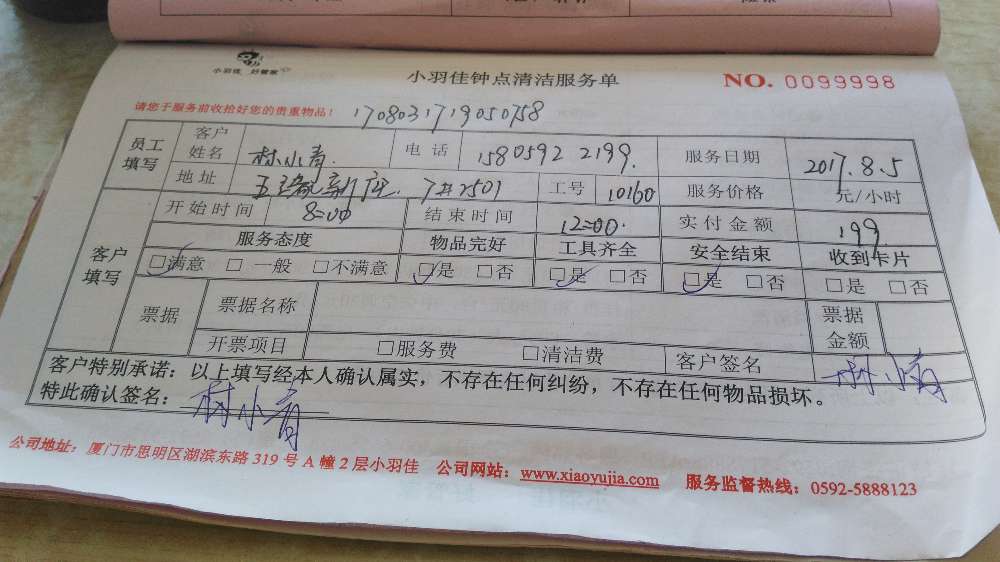 小羽佳 好管家
小羽佳钟点清洁服务单
NO. 0099998
请您于服务前收拾好您的贵重物品!
1708031719050758
员工填写 客户姓名 林小青 电话 1580592 2199 服务日期 2017.8.5
地址 7#2501 工号 10160 服务价格 元/小时
开始时间 8=00 结束时间 12=00 实付金额 199
客户填写 服务态度 物品完好 工具齐全 安全结束 收到卡片
☑满意 □一般 □不满意 ☑是 □否 ☑是 □否 ☑是 □否 □是 □否
票据 票据名称 票据金额
开票项目 □服务费 □清洁费 客户签名 林小青
客户特别承诺:以上填写经本人确认属实,不存在任何纠纷,不存在任何物品损坏。
特此确认签名: 林小青
公司地址:厦门市思明区湖滨东路 319 号 A 幢 2 层小羽佳 公司网站:www.xiaoyujia.com 服务监督热线:0592-5888123